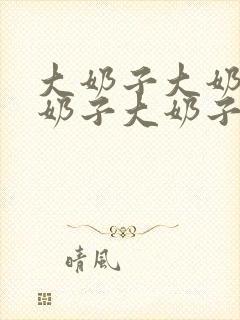 大奶子大奶
奶子大奶子
晴風